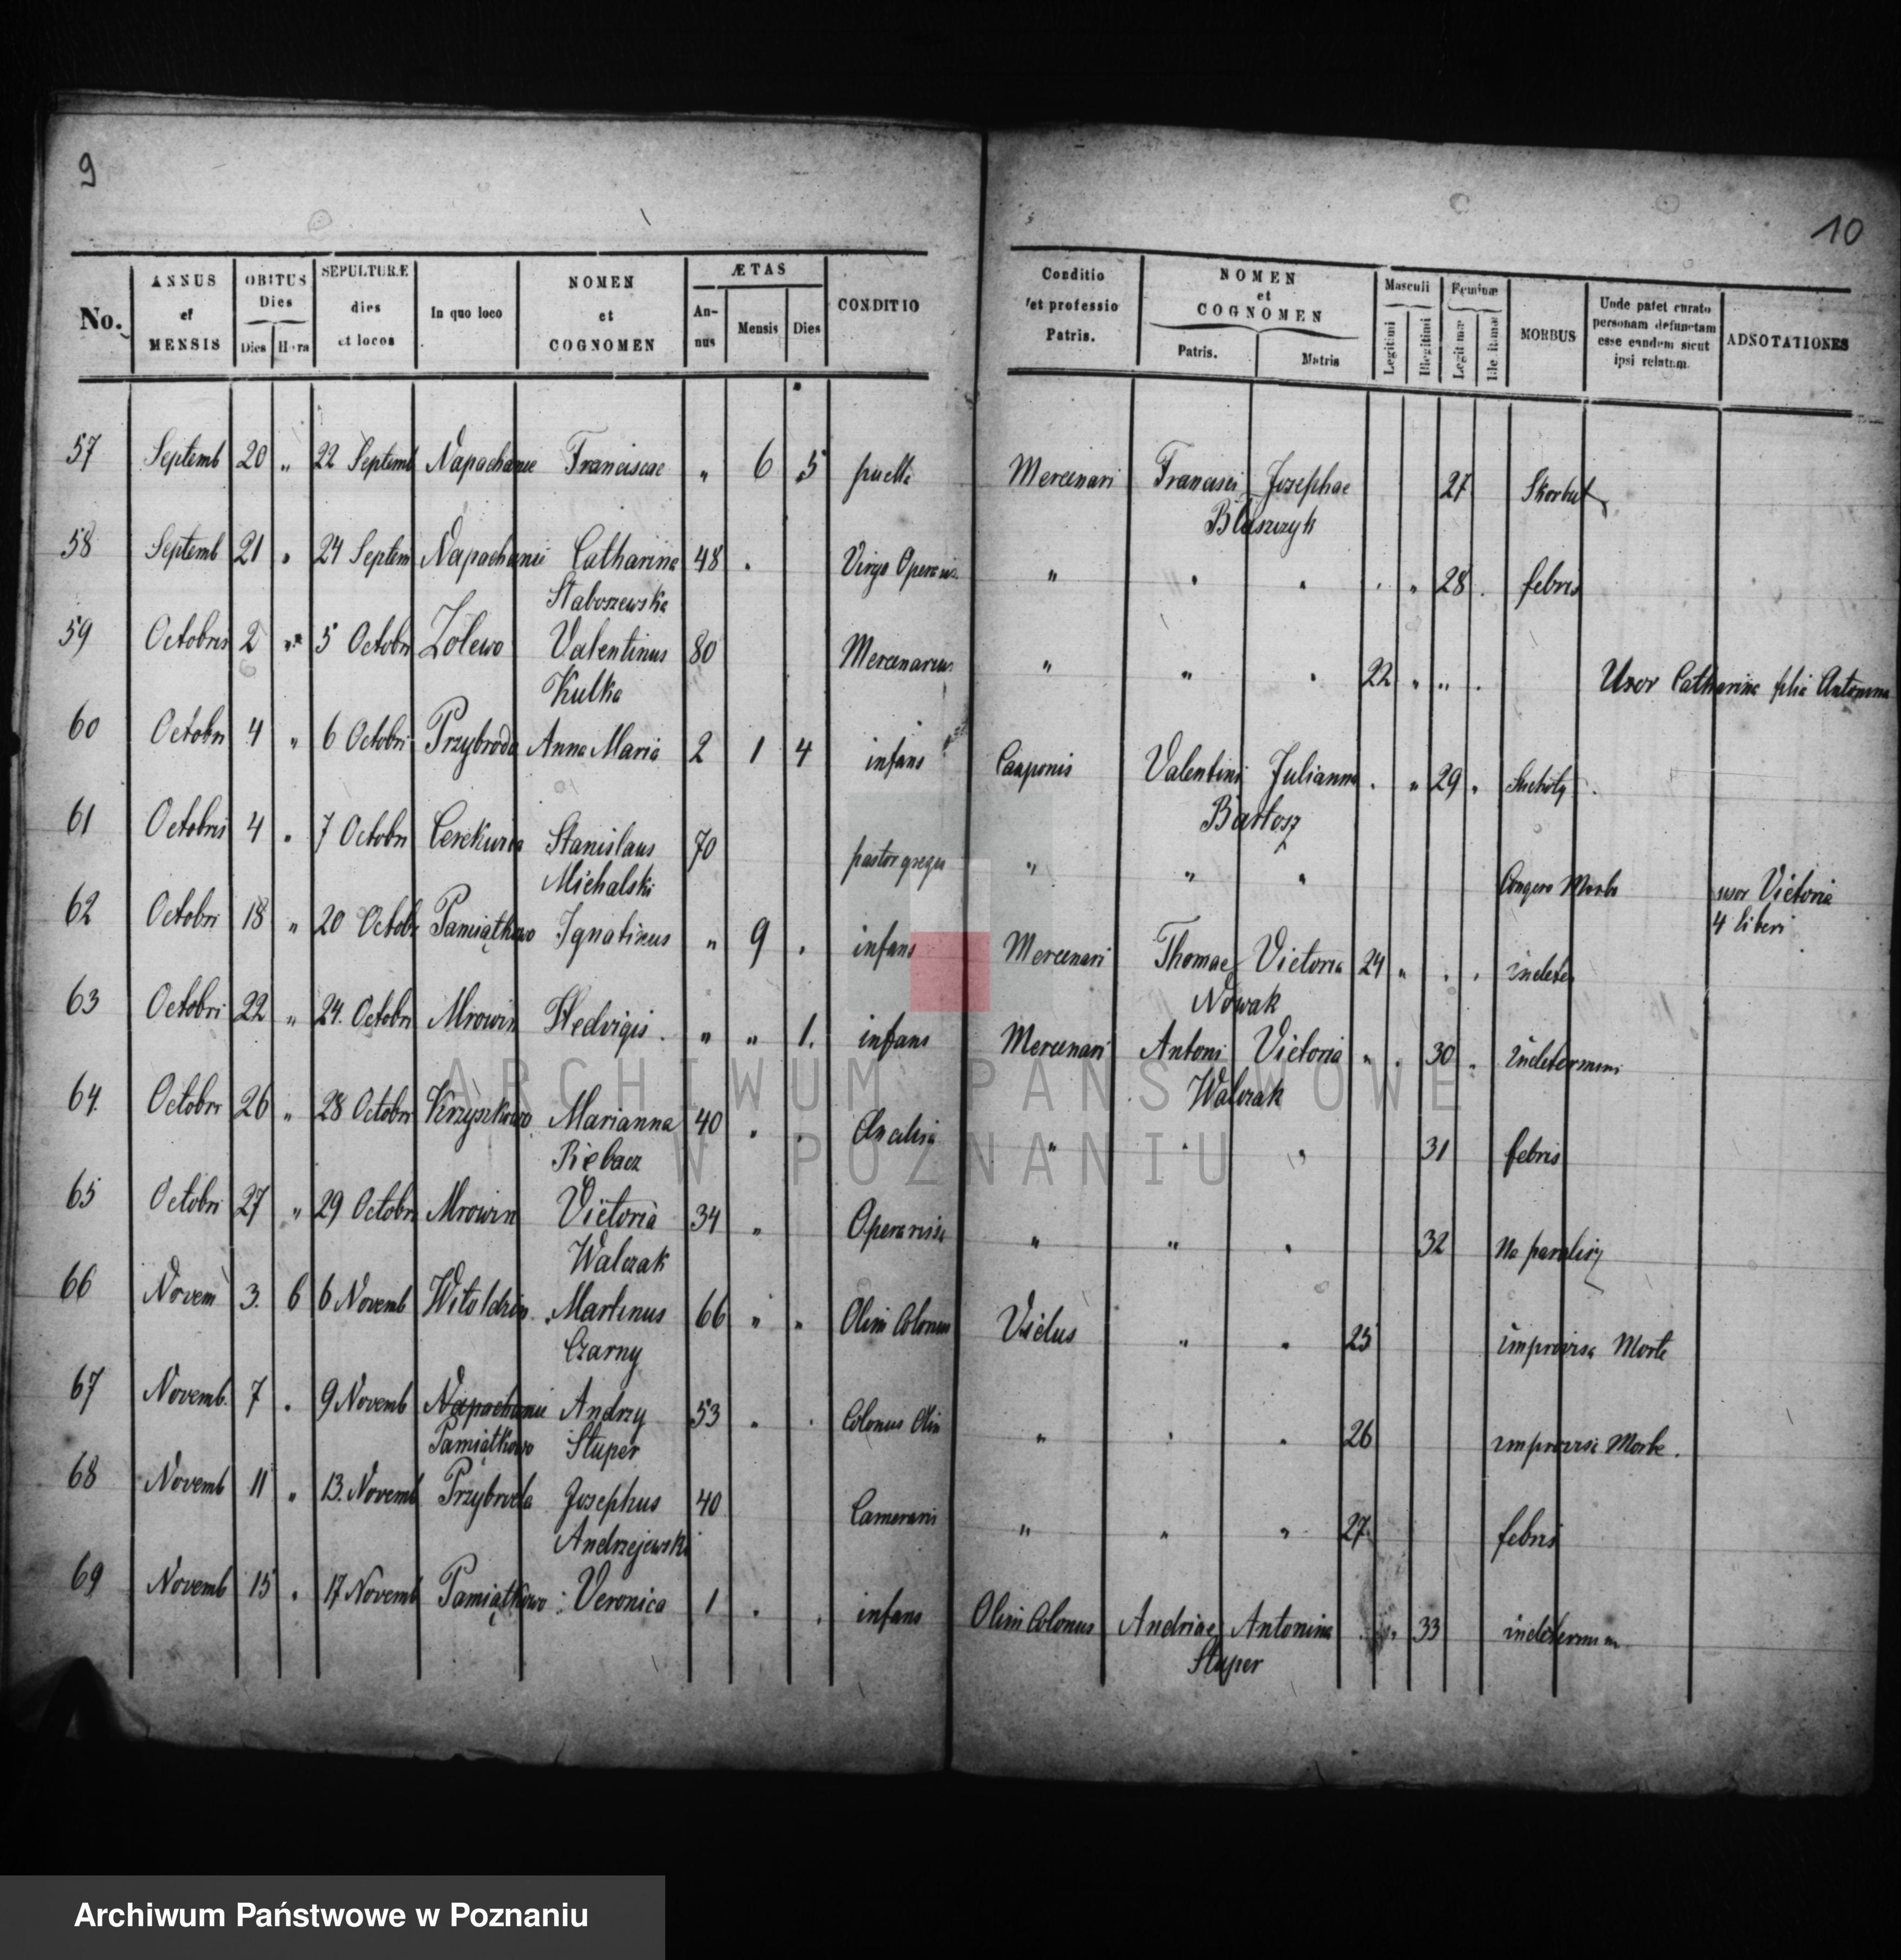 9
10
No. ANNUS et MENSIS OBITUS Dies Dies Hora SEPULTURÆ dies et locos In quo loco NOMEN et COGNOMEN ÆTAS Annus Mensis Dies CONDITIO Conditio et professio Patris. NOMEN et COGNOMEN Patris. Matris Masculi Legitimi Illegitimi Feminæ Legitimæ MORBUS Unde patet curato personam defunctam esse eandem sicut ipsi relatum. ADNOTATIONES
57 Septemb 20 " 22 Septemb Napachanie Franciscae " 6 5 puella Mercenari Francisci Josephae 27 Skorbut
Błaszczyk
58 Septemb 21 " 24 Septem Napachanie Catharina 48 . Virgo " . . . " 28 . febris
Staboszewska
59 Octobris 2 " 5 Octobr Zolewo Valentinus 80 Mercenarius " " . 22 " " . Uxor Catharina filia Antonina
Kulka
60 Octobri 4 " 6 Octobri Przybroda Anna Maria 2 1 4 infans Cauponis Valentini Julianna . " 29 " Suchoty .
Bartosz
61 Octobris 4 " 7 Octobri Cerekwica Stanislaus 70 pastor gregis " " " Morbo uxor Victoria
Michalski 4 liberi
62 Octobri 18 " 20 Octobr Pamiątkowo Ignatius " 9 . infans Mercenari Thomae Victoria 24 " . . indeter
Nowak
63 Octobri 22 " 24. Octobri Mrowin Hedvigis . " " 1. infans Mercenari Antoni Victoria " . 30 . indetermini
Walczak
64. Octobri 26 " 28 Octobri Krzyszkowo Marianna 40 . . Ancilia " . " 31 febris
Riebacz
65 Octobri 27 " 29 Octobri Mrowin Victoria 34 " Operaria " " . 32 Na paraliż
Walczak
66 Novem 3. 6 6 Novemb Witoldzin Martinus 66 " " Olim Colonus " . 25 improvisa Morte
Czarny
67 Novemb. 7 . 9 Novemb Napachanie Andrzy 53 . . Colonus Olim " . . 26 improvisa Morte.
Pamiątkowo Stuper
68 Novemb 11 " 13. Novemb Przybroda Josephus 40 Camerari " " " 27. febris
Andrzejewski
69 Novemb 15 . 17 Novemb Pamiątkowo Veronica 1 . . infans Olim Colonus Andriae Antonina . " 33 indetermin
Stuper
ARCHIWUM PAŃSTWOWE
W POZNANIU
Archiwum Państwowe w Poznaniu